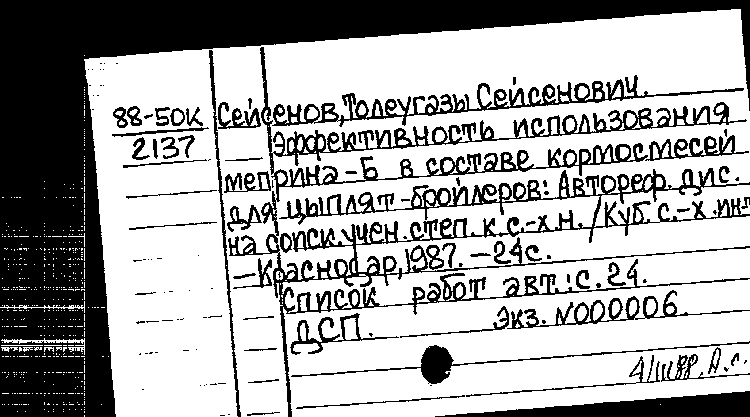 88-50К Сейсенов, Толеугазы Сейсенович.
2137 Эффективность использования
меприна-Б в составе кормосмесей
для цыплят-бройлеров: Автореф. дис.
на соиск. учен. степ. к.с.-х.н. /Куб. с.-х. ин-т
— Краснодар, 1987. — 24с.
Список работ авт.: с. 24.
ДСП. Экз. N000006.
4/III88. Л.С.